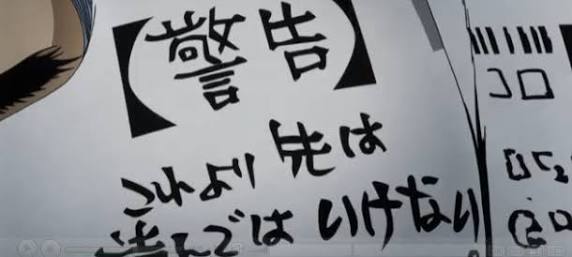 【警告】
これより先は
進んではいけない
コロ